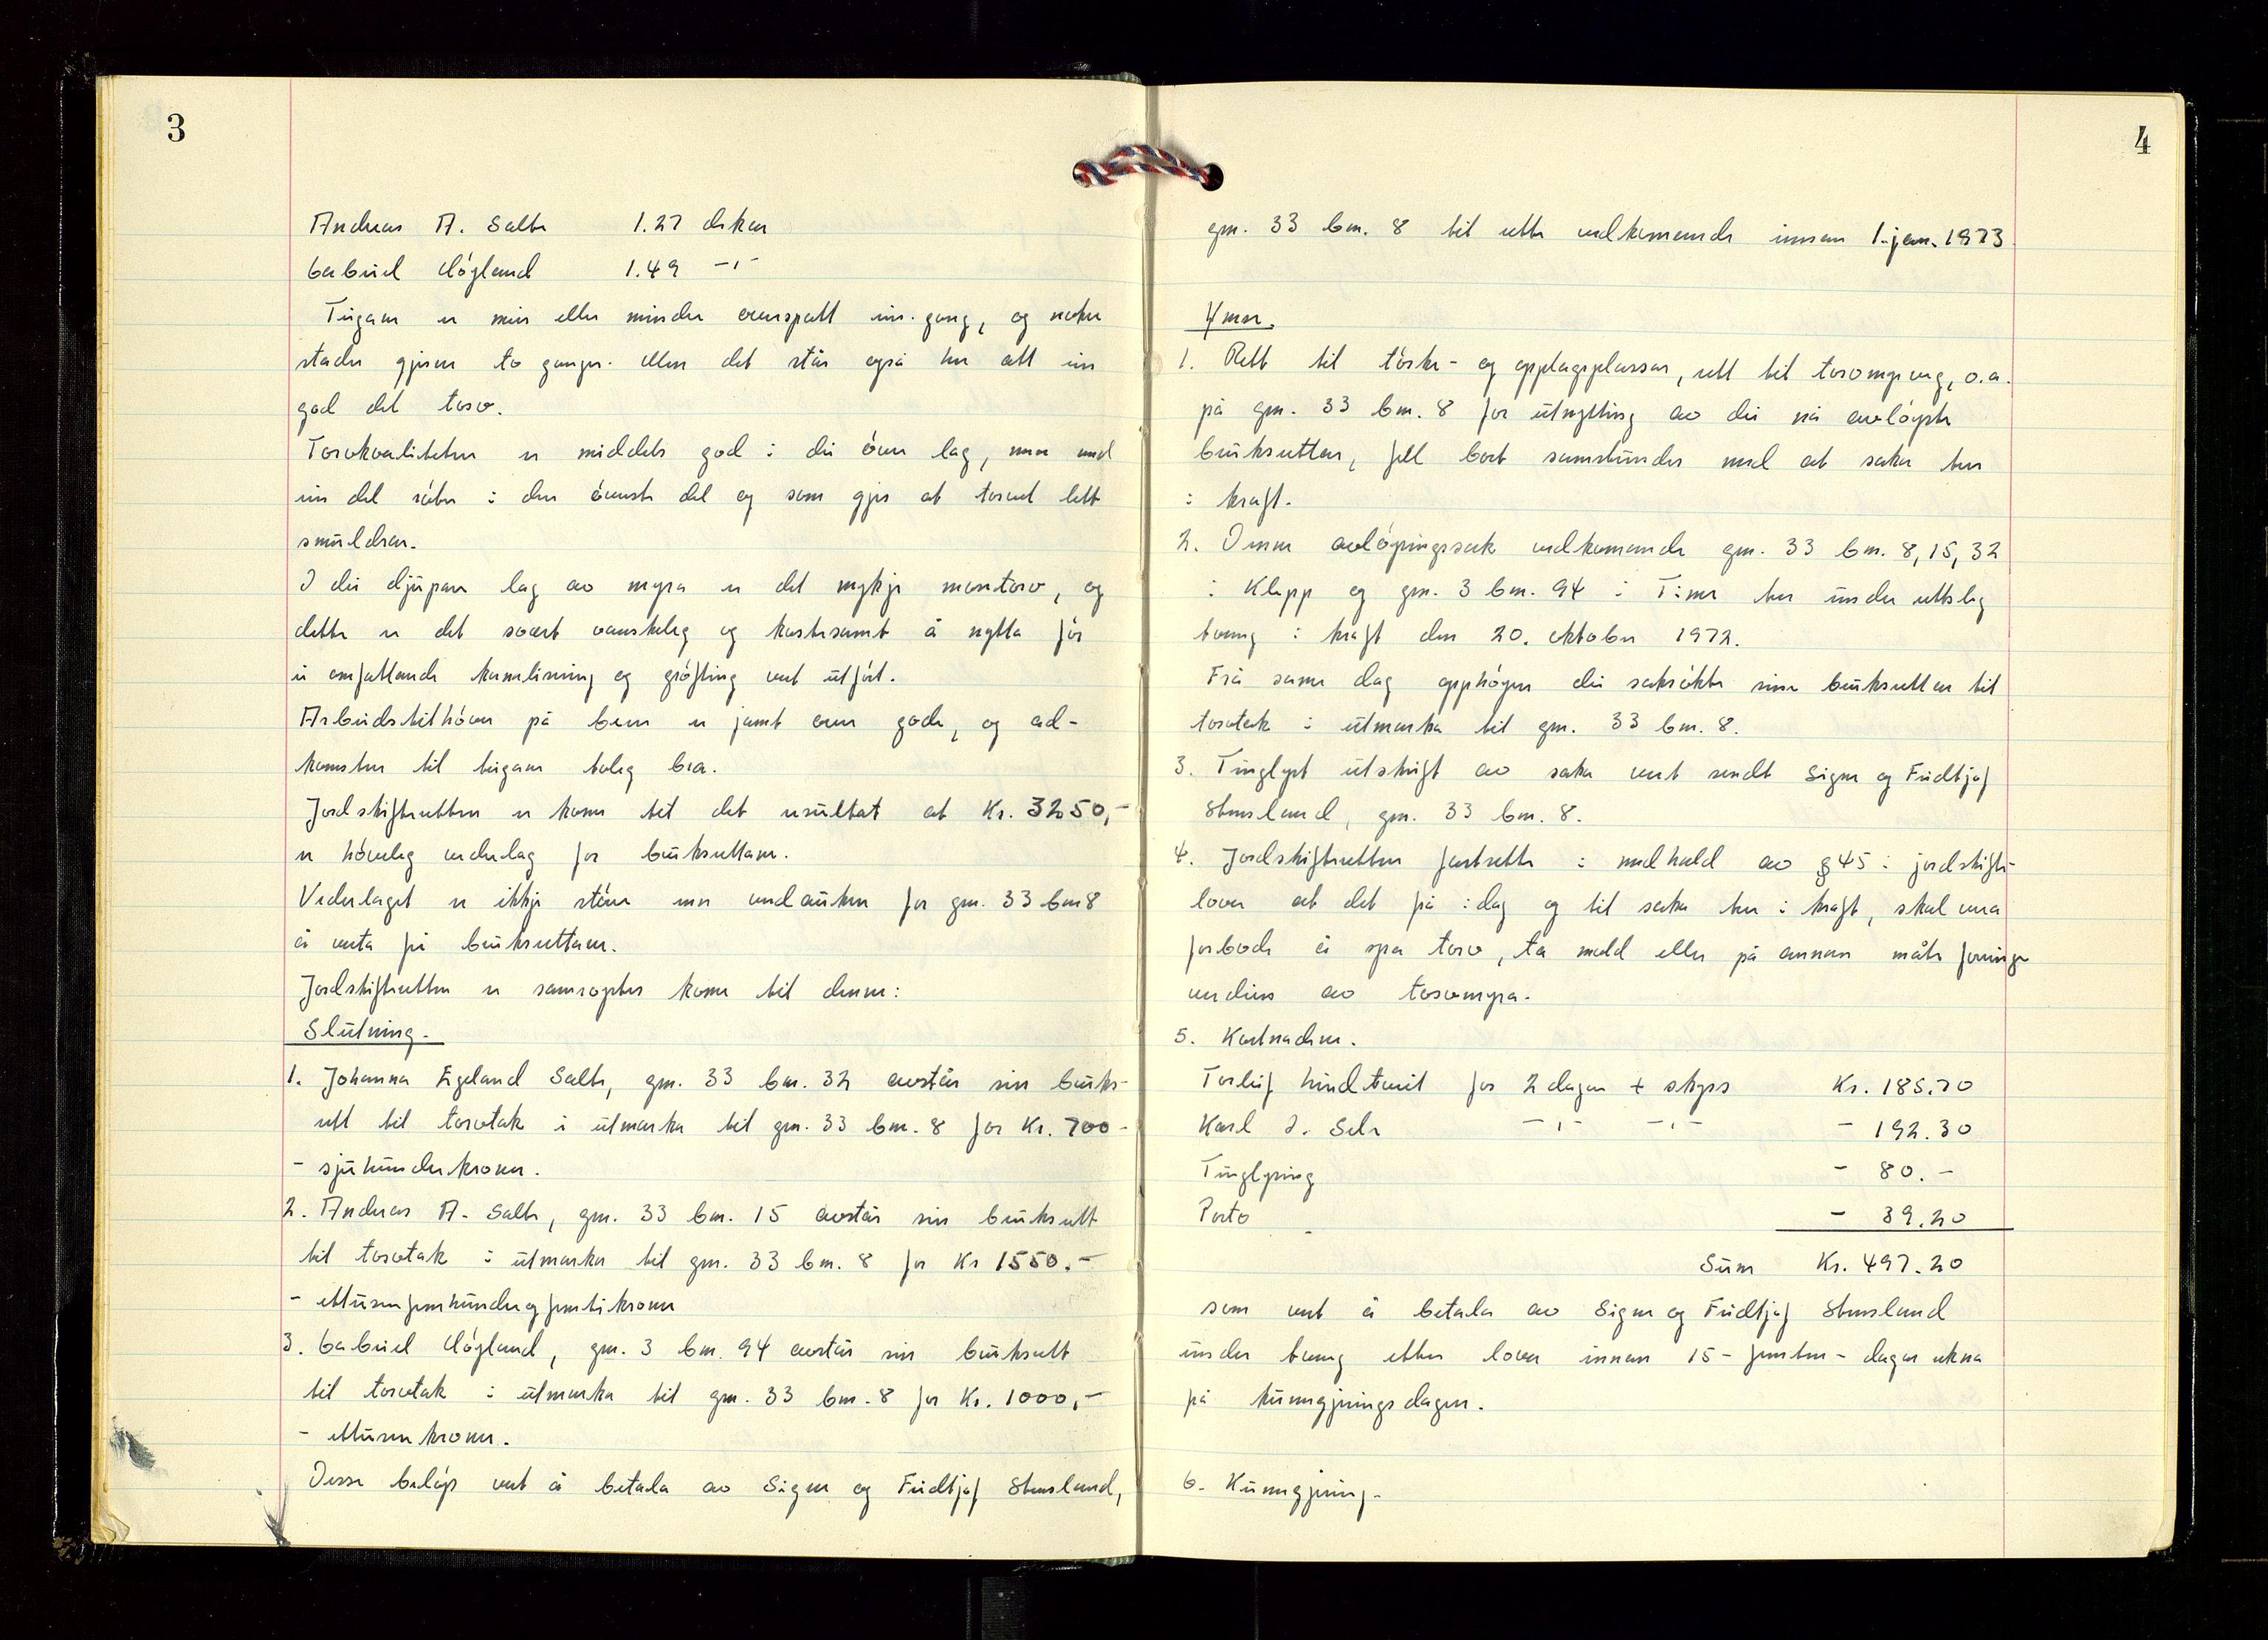 3
Andreas A. Salte 1.27 dekar
Gabriel Høgland 1.49 -"-
Teigane er meir eller mindre overspatt ein gang, og nokre
stader gjerne to gonger. Men det står også her att ein
god del torv.
Torvkvaliteten er middels god i dei øvre lag, men med
ein del røter i den øverste del og som gjer at torvet lett
smuldrar.
I dei djupare lag av myra er det mykje montorv, og
dette er det svært vanskeleg og kostesamt å nytta før
ei omfattande kanalisering og grøfting vert utført.
Arbeidstilhøva på bere er jamt over gode, og ad-
komsten til teigane toleg bra.
Jordskifteretten er kome til det resultat at Kr. 3250,-
er høveleg vederlag for bruksrettane.
Vederlaget er ikkje større enn verdauken for gnr. 33 bnr 8
å verta fri bruksrettane.
Jordskifteretten er samrøystes kome til denne:
Slutning.
1. Johanna Egeland Salte, gnr. 33 bnr. 32 avstår sin bruks-
rett til torvtak i utmarka til gnr. 33 bnr. 8 for Kr. 700-
- sjuhundrekroner.
2. Andreas A. Salte, gnr. 33 bnr. 15 avstår sin bruksrett
til torvtak i utmarka til gnr. 33 bnr. 8 for Kr 1550.-
- ettusenfemhundreogfemtikroner
3. Gabriel Høgland, gnr. 3 bnr. 94 avstår sin bruksrett
til torvtak i utmarka til gnr. 33 bnr. 8 for Kr. 1000,-
- ettusenkroner.
Desse beløp vert å betala av Signe og Fridtjof Stensland,
4
gnr. 33 bnr. 8 til rette vedkomande innan 1. jan. 1973
Ymse.
1. Rett til tørke- og opplagsplassar, rett til torvmyrveg, o.a.
på gnr. 33 bnr. 8 for utnytting av dei nå avløyste
bruksretter, fell bort samstundes med at saka tek
i kraft.
2. Denne avløysingssak vedkomande gnr. 33 bnr. 8, 15, 32
i Klepp og gnr. 3 bnr. 94 i Time tek under rettsleg
tvang i kraft den 20. oktober 1972.
Frå same dag opphøyrer dei saksøkte sine bruksrettar til
torvtak i utmarka til gnr. 33 bnr. 8.
3. Tinglyst utskrift av saka vert sendt Signe og Fridtjof
Stensland, gnr. 33 bnr. 8.
4. Jordskifteretten fastsette i medhald av § 45 i jordskifte-
lova at det frå idag og til saka tek i kraft, skal vera
forbode å spa torv, ta mold eller på annan måte forringe
verdien av torvmyra.
5. Kostnadene.
Torleif Lindtveit for 2 dagar + skyss Kr. 185.70
Karl J. Sele -"- -"- - 192.30
Tinglysing - 80.-
Porto - 39.20
Sum Kr. 497.20
som vert å betala av Signe og Fridtjof Stensland
under tvang etter lova innan 15- femten- dagar rekna
frå kunngjeringsdagen.
6. Kunngjering.